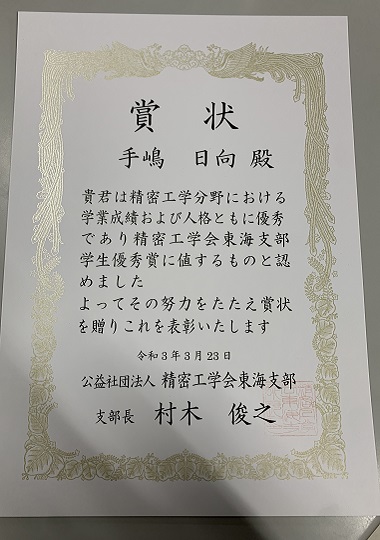 賞状
手嶋 日向 殿
貴君は精密工学分野における
学業成績および人格ともに優秀
であり精密工学会東海支部
学生優秀賞に値するものと認
めました
よってその努力をたたえ賞状
を贈りこれを表彰いたします
令和3年3月23日
公益社団法人 精密工学会東海支部
支部長 村木 俊之